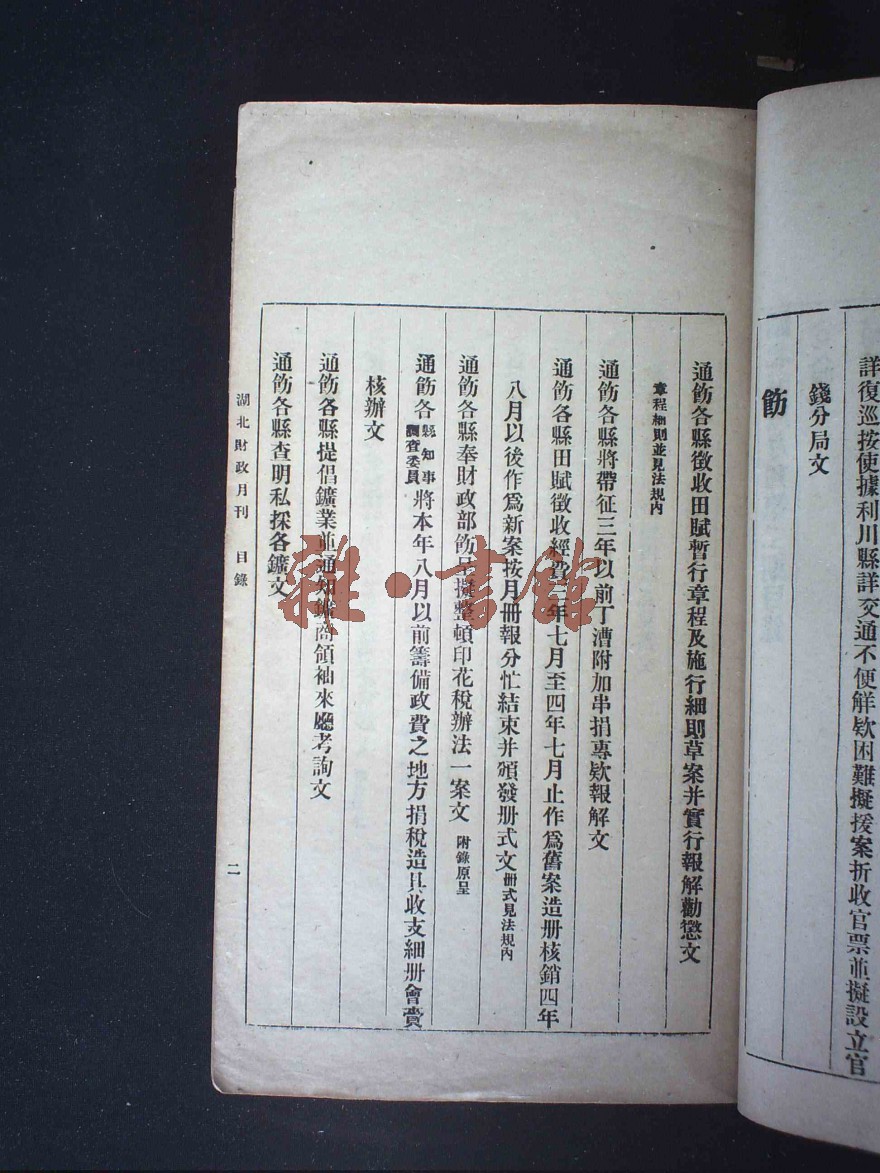 詳復巡按使據利川縣詳交通不便解欵困難擬援案折收官票並擬設立官
錢分局文
飭
通飭各縣徵收田賦暫行章程及施行細則草案并實行報解勸懲文
章程細則並見法規內
通飭各縣將帶征三年以前丁漕附加串捐專欵報解文
通飭各縣田賦徵收經費三年七月至四年七月止作爲舊案造册核銷四年
八月以後作爲新案按月册報分忙結束并頒發册式文册式見法規內
通飭各縣奉財政部飭呈擬整頓印花稅辦法一案文 附錄原呈
通飭各縣知事調查委員將本年八月以前籌備政費之地方捐稅造具收支細册會賫
核辦文
通飭各縣提倡鑛業並通知鑛商領袖來廳考詢文
通飭各縣查明私採各鑛文
湖北財政月刊 目錄
二
雜·書館